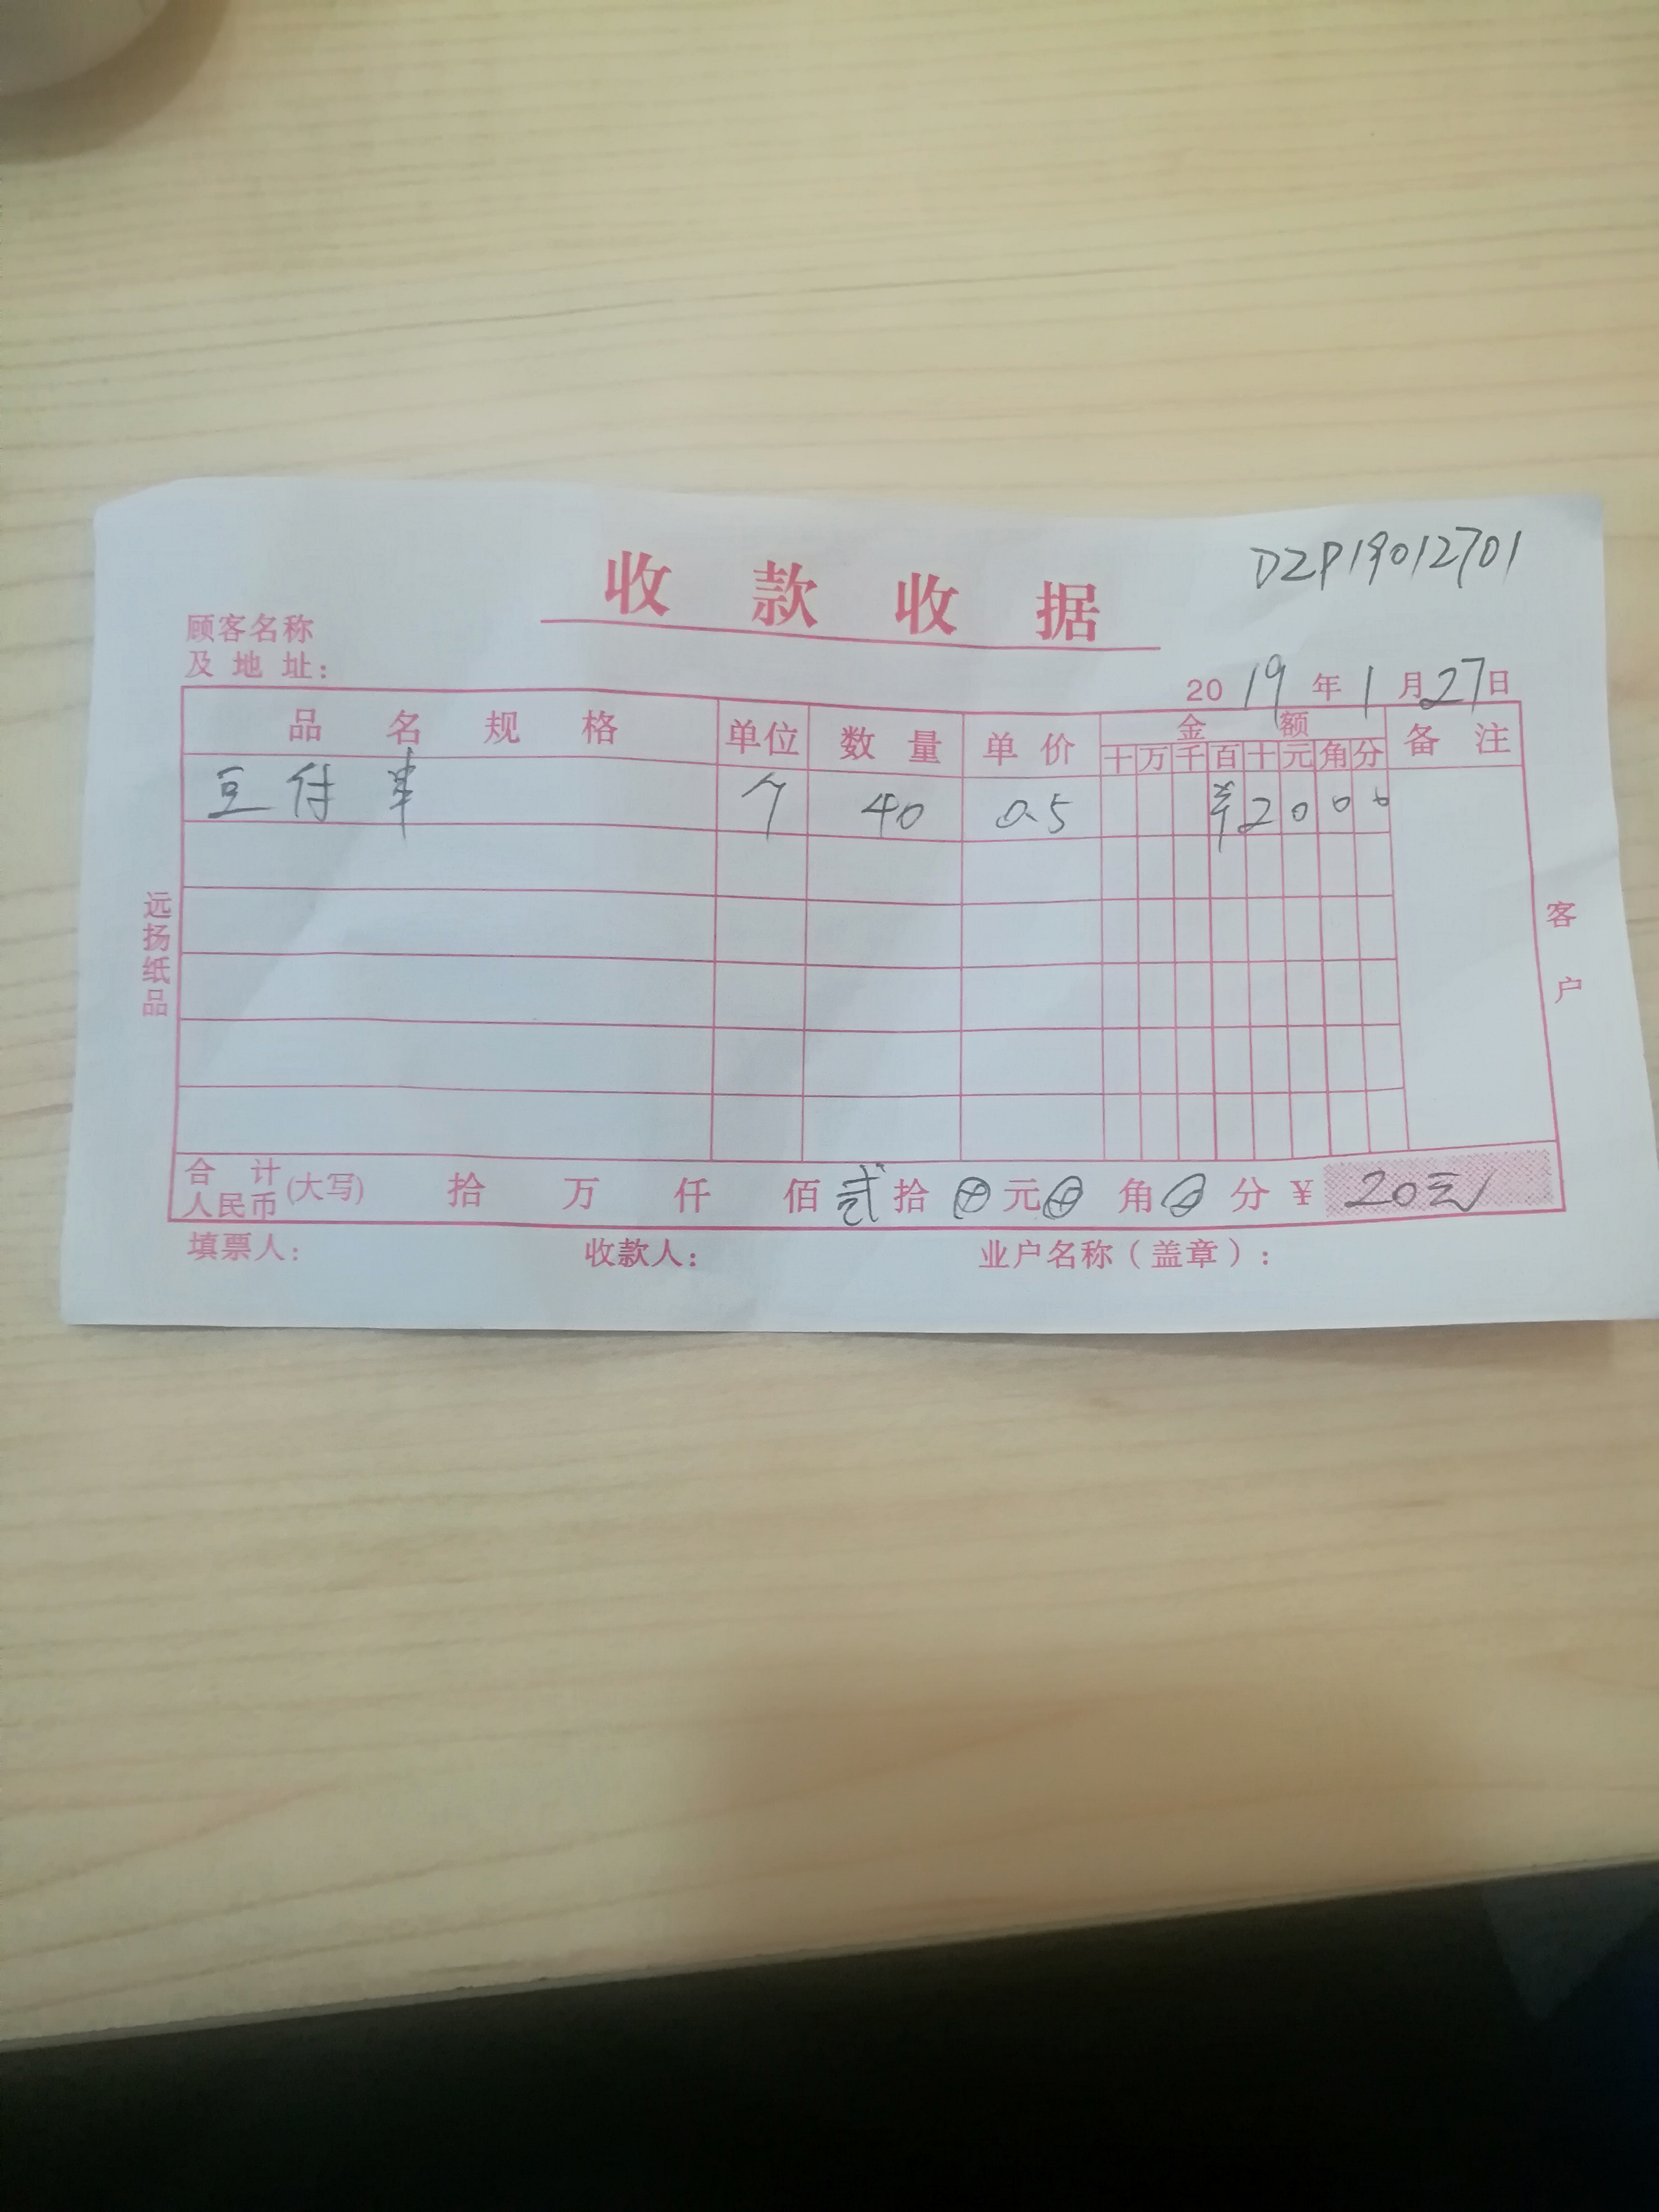 DZP19012701
收款收据
顾客名称
及地址：
2019年1月27日
品名规格 单位 数量 单价 金额 备注
十 万 千 百 十 元 角 分
豆付串 个 40 0.5 ¥2000
远扬纸品
客户
合计
人民币(大写) 拾 万 仟 佰 贰 拾 ⊕ 元 ⊕ 角 ⊕ 分 ¥ 20元
填票人： 收款人： 业户名称（盖章）：